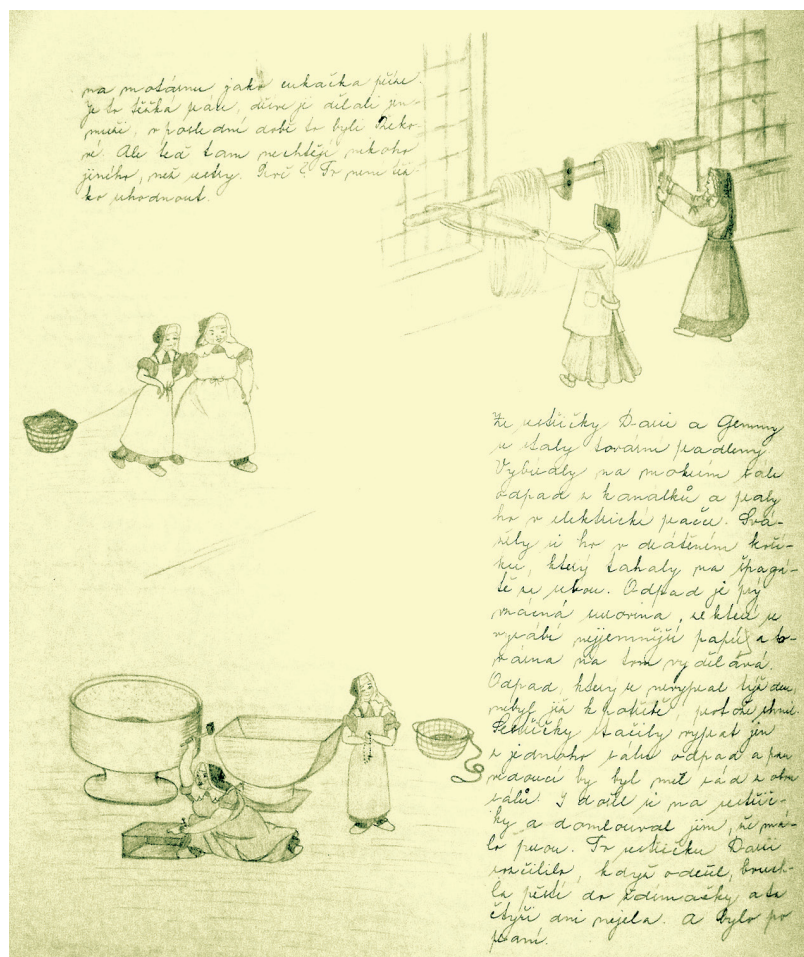 na motárnu jako cukačka příze.
Je to těžká práce, dříve ji dělali jen
muži, v poslední době to byli Řeko-
vé. Ale teď tam nechtějí nikoho
jiného, než sestry. Proč? To není těž-
ko uhodnout.
Ze sestřičky Darii a Gemmy
se staly tovární pradleny
Vybíraly na mokrém sále
odpad z kanálků a praly
ho v elektrické pračce. Svá-
žely si ho v drátěném koší-
ku, který tahaly na špagá-
tě za sebou. Odpad je prý
vzácná surovina, ze které se
vyrábí nejjemnější papír a to-
várna na tom vydělává.
Odpad, který se nevypral týž den,
nebyl již k potřebě, protože shnil.
Sestřičky stačily vyprat jen
z jednoho sálu odpad a pan
vedoucí by byl měl rád z obou
sálů. I došel si na sestřič-
ky a domlouval jim, že má-
lo perou. To sestřičku Darii
rozčililo, když odešel, bouch-
la pěstí do ždímačky a ta
čtyři dni nejela. A bylo po
praní.